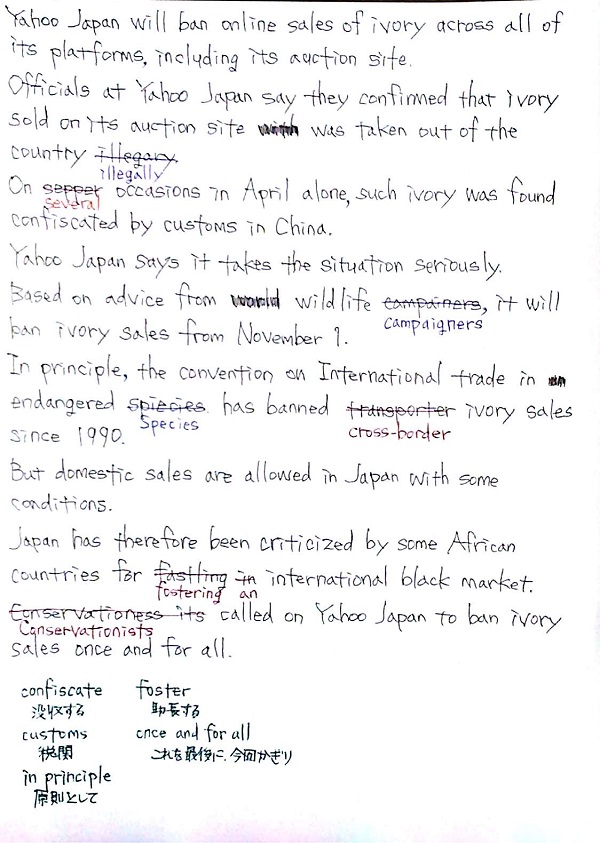 Yahoo Japan will ban online sales of ivory across all of
its platforms, including its auction site.
Officials at Yahoo Japan say they confirmed that ivory
sold on its auction site was taken out of the
country illegary.
illegally
On sepper occasions in April alone, such ivory was found
several
confiscated by customs in China.
Yahoo Japan says it takes the situation seriously.
Based on advice from world wildlife campainers, it will
campaigners
ban ivory sales from November 1.
In principle, the convention on International trade in
endangered spiecies has banned transporter ivory sales
Species cross-border
since 1990.
But domestic sales are allowed in Japan with some
conditions.
Japan has therefore been criticized by some African
countries for fastling in international black market.
fostering an
Conservationess its called on Yahoo Japan to ban ivory
Conservationists
sales once and for all.
confiscate foster
没収する 助長する
customs once and for all
税関 これを最後に、今回かぎり
in principle
原則として